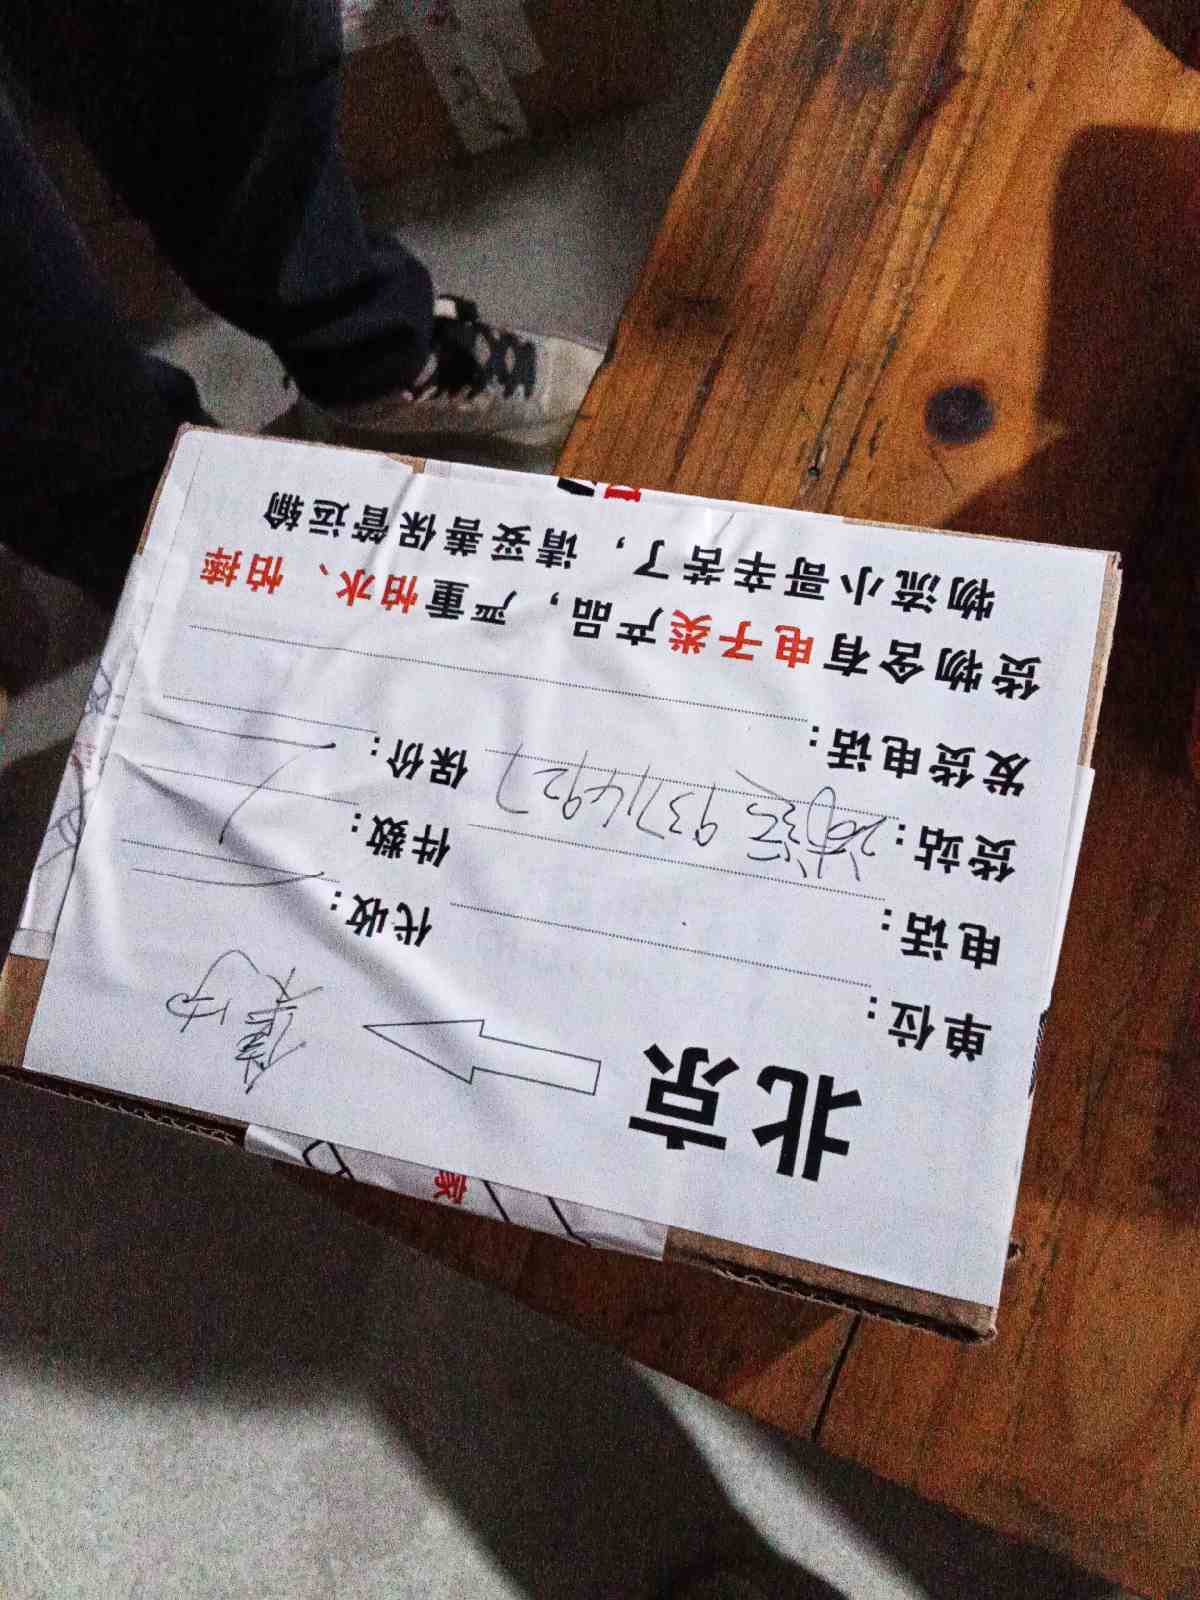 北京
单位：
代收：
电话：
件数：
货站： 93714927
保价：
发货电话：
货物含有电子类产品，严重怕水、怕摔
物流小哥辛苦了，请妥善保管运输
家